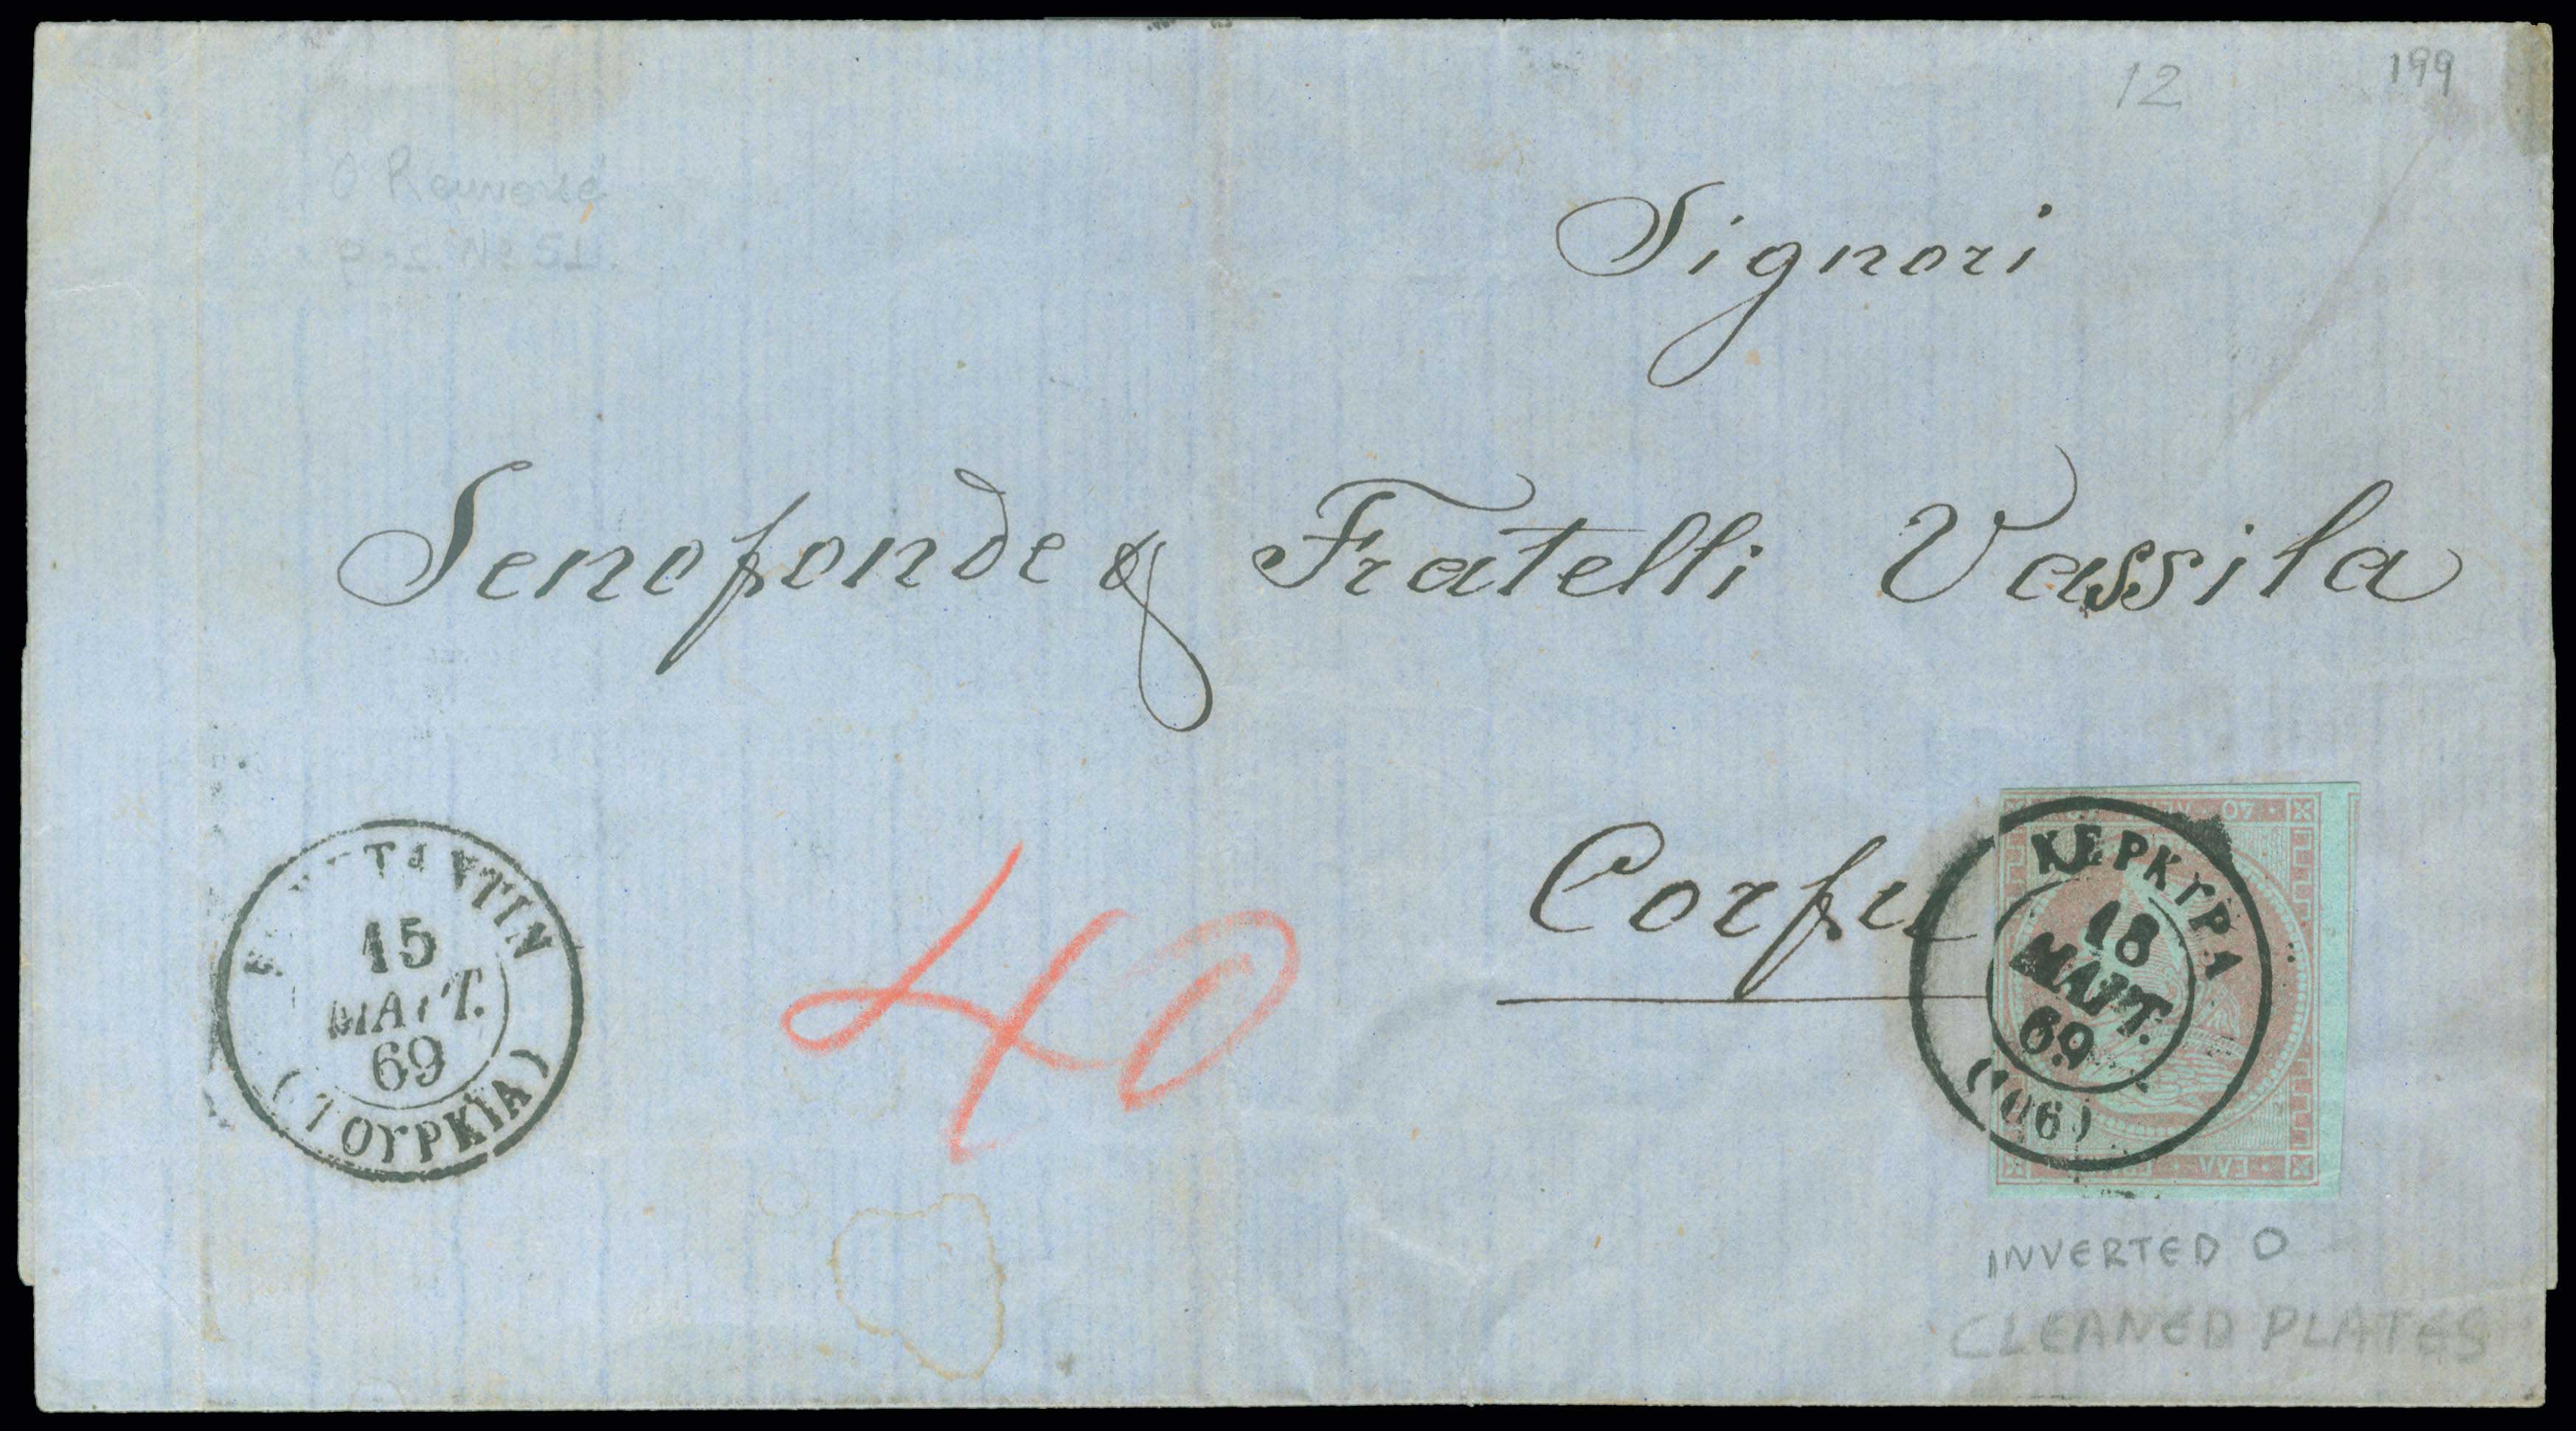 12
199
Nο 51.
Signori
Senofonde & Fratelli Vassila
Corfu
40
15
ΜΑΡΤ.
69
(ΤΟΥΡΚΙΑ)
40
ΚΕΡΚΥΡΑ
18
ΜΑΡΤ.
69
(106)
ΕΛΛ
INVERTED O
CLEANED PLATES